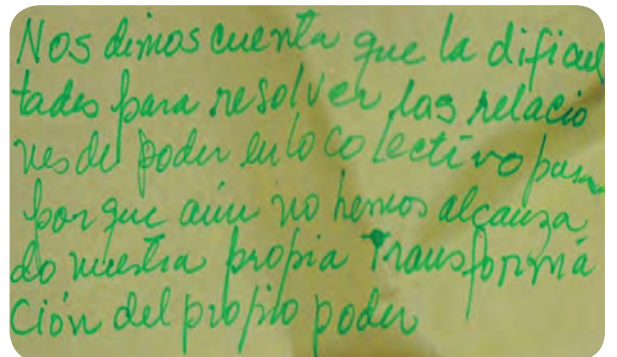 Nos dimos cuenta que la dificul
tades para resolver las relacio
nes del poder en lo colectivo pasa
porque aún no hemos alcanza
do nuestra propia Transforma
ción del propio poder